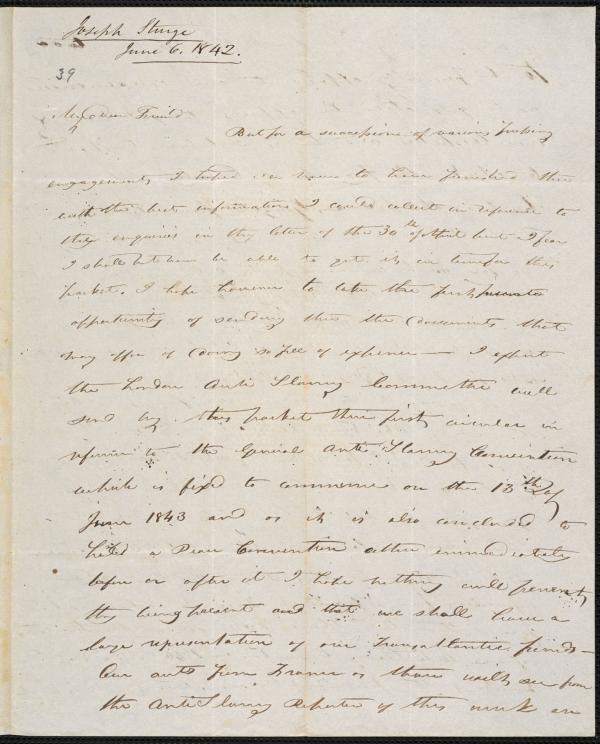 Joseph Sturge
June 6. 1842.
39
My Dear Friend
But for a succession of various pressing
engagements I hoped ere now to have furnished thee
with the best information I could collect in reference to
thy enquiries in thy letter of the 30th of April but I fear
I shall not now be able to get it in time for this
packet. I hope however to take the first private
opportunity of sending thee the documents that
may offer of doing so free of expence — I expect
the London Anti Slavery Committee will
send by this packet their first circular in
reference to the General Anti Slavery Convention
which is fixed to commence on the 13th of
June 1843 and as it is also concluded to
hold a Peace Convention either immediately
before or after it I hope nothing will prevent
thy being present and that we shall have a
large representation of our Transatlantic friends —
Our from France as thou wilt see from
the Anti Slavery Reporter of this week